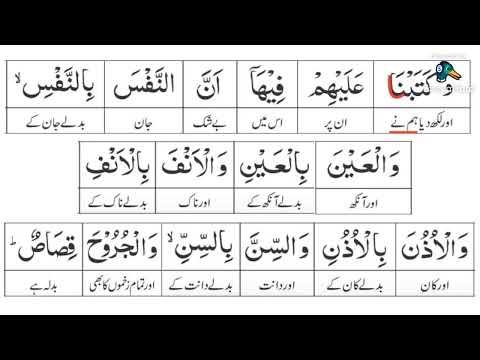 وَكَتَبْنَا عَلَيْهِمْ فِيْهَاۤ اَنَّ النَّفْسَ بِالنَّفْسِ ۙ
اور لکھ دیا ہم نے ان پر اس میں بے شک جان بدلے جان کے
وَالْعَيْنَ بِالْعَيْنِ وَالْاَنْفَ بِالْاَنْفِ
اور آنکھ بدلے آنکھ کے اور ناک بدلے ناک کے
وَالْاُذُنَ بِالْاُذُنِ وَالسِّنَّ بِالسِّنِّ ۙ وَالْجُرُوْحَ قِصَاصٌ ؕ
اور کان بدلے کان کے اور دانت بدلے دانت کے اور تمام زخموں کا بھی بدلہ ہے